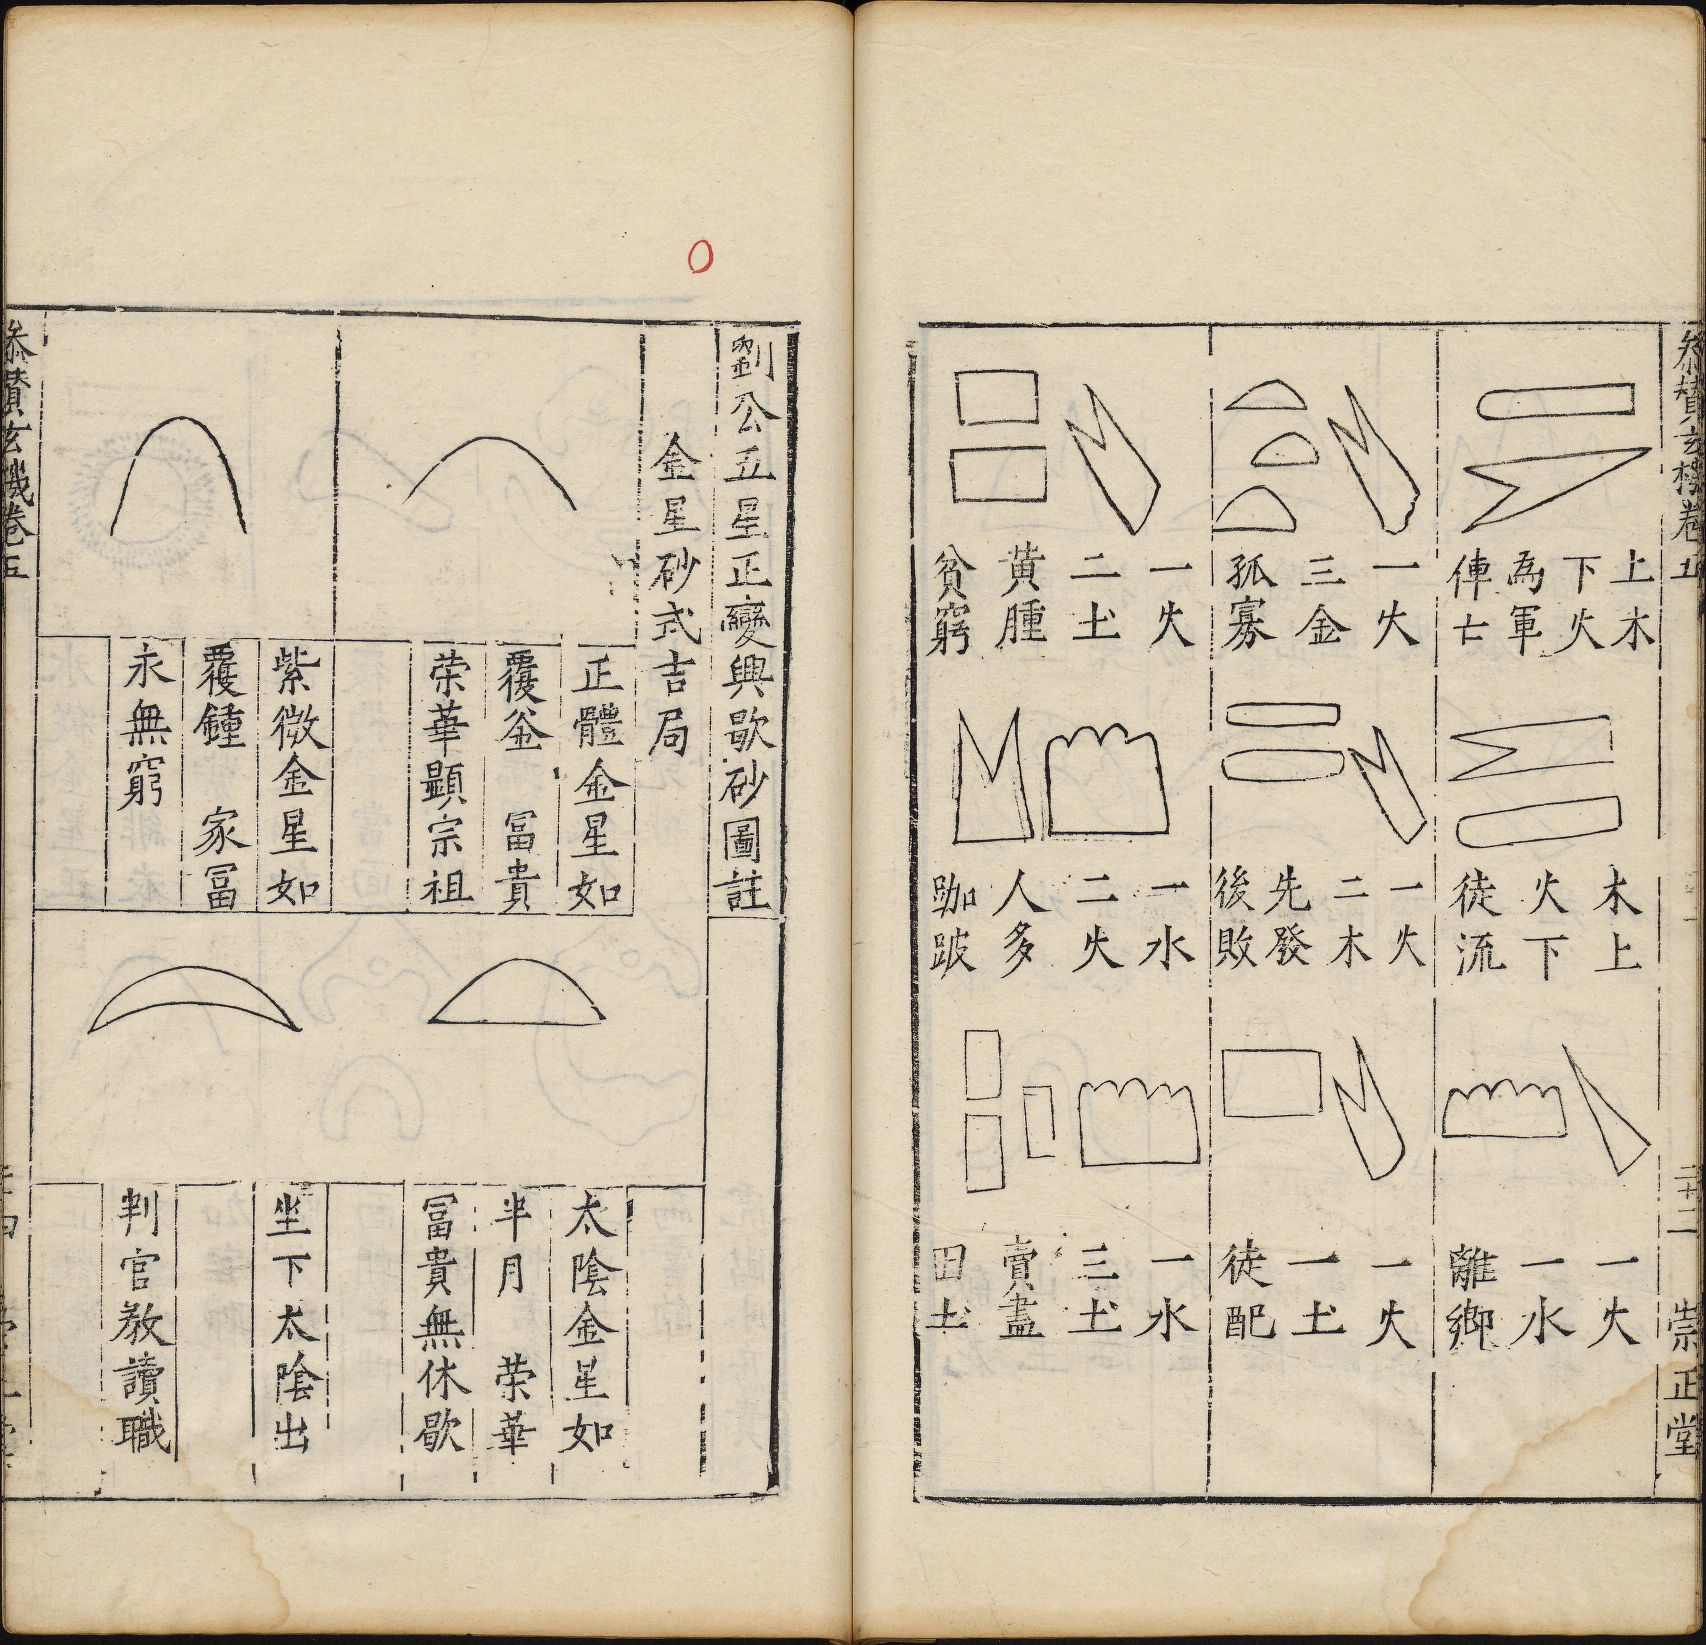 參贊玄機卷五
二十二
崇正堂
上木
下火
為軍
俥亡
木上
火下
徒流
一火
一水
離鄉
一火
三金
孤寡
一火
二木
先發
後敗
一火
一土
徒配
一火
二土
黃腫
貧窮
一水
二火
人多
跏跛
一水
三土
賣盡
田土
劉公五星正變興歇砂圖註
金星砂式吉局
正體金星如
覆釜 冨貴
荣華顯宗祖
紫微金星如
覆鍾 家冨
永無窮
太陰金星如
半月 荣華
冨貴無休歇
坐下太陰出
判官教讀職
參贊玄機卷五